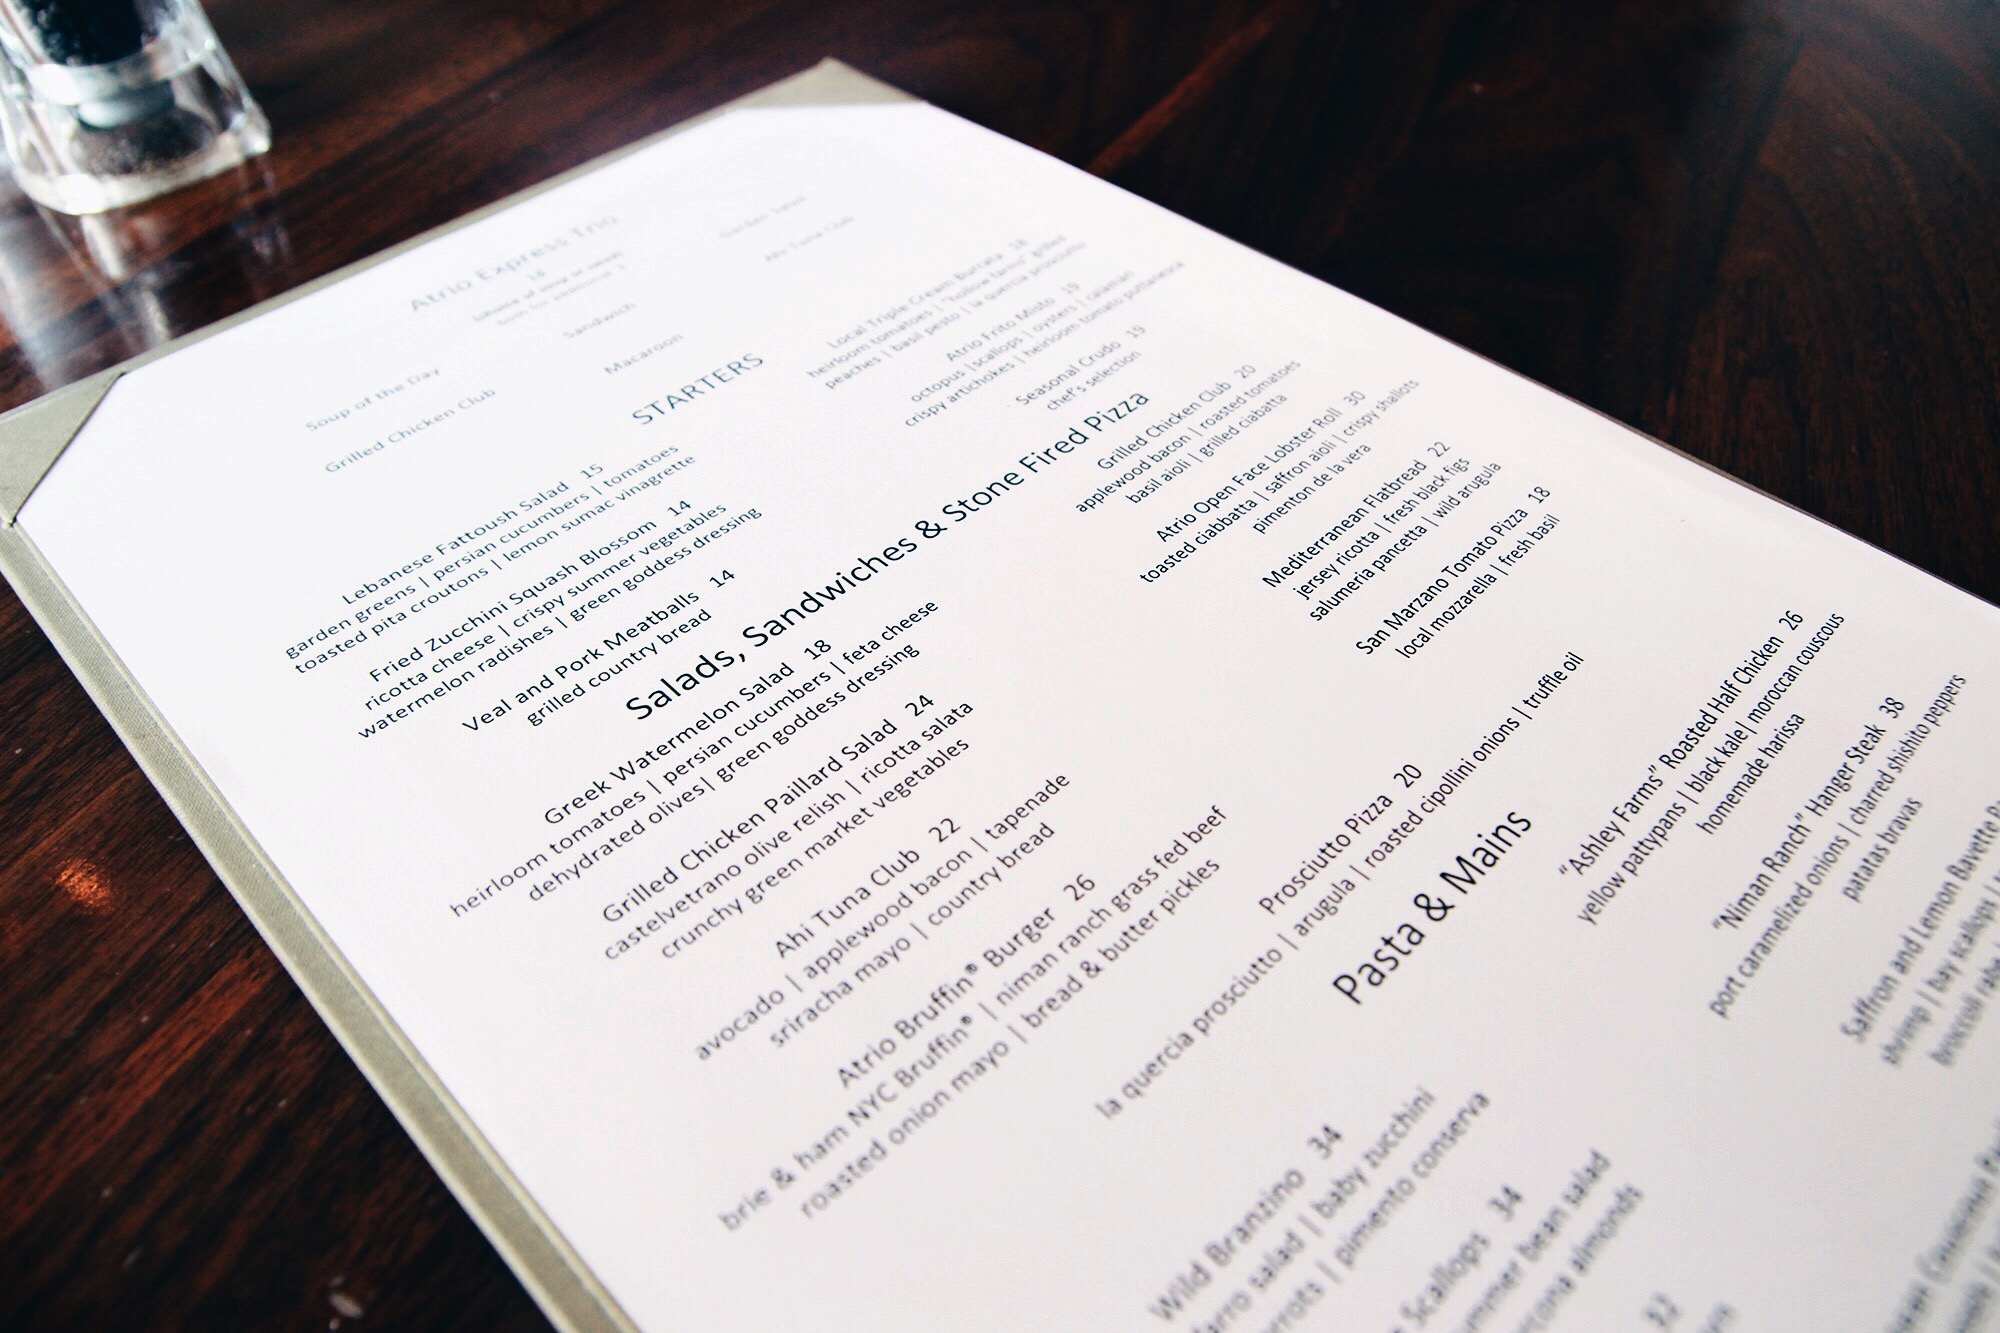 Atrio Express Trio
18
Soup of the Day
Sandwich
Garden Salad
Grilled Chicken Club
Macaroon
Ahi Tuna Club
STARTERS
Lebanese Fattoush Salad 15
garden greens | persian cucumbers | tomatoes
toasted pita croutons | lemon sumac vinagrette
Fried Zucchini Squash Blossom 14
ricotta cheese | crispy summer vegetables
watermelon radishes | green goddess dressing
Veal and Pork Meatballs 14
grilled country bread
Local Triple Cream Burrata 18
heirloom tomatoes | "hollow farms" grilled
peaches | basil pesto | la quercia prosciutto
Atrio Frito Misto 19
octopus |scallops | oysters | calamari
crispy artichokes | heirloom tomato puttanesca
Seasonal Crudo 19
chef's selection
Salads, Sandwiches & Stone Fired Pizza
Greek Watermelon Salad 18
heirloom tomatoes | persian cucumbers | feta cheese
dehydrated olives| green goddess dressing
Grilled Chicken Paillard Salad 24
castelvetrano olive relish | ricotta salata
crunchy green market vegetables
Ahi Tuna Club 22
avocado | applewood bacon | tapenade
sriracha mayo | country bread
Atrio Bruffin® Burger 26
brie & ham NYC Bruffin® | niman ranch grass fed beef
roasted onion mayo | bread & butter pickles
Grilled Chicken Club 20
applewood bacon | roasted tomatoes
basil aioli | grilled ciabatta
Atrio Open Face Lobster Roll 30
toasted ciabbatta | saffron aioli | crispy shallots
pimenton de la vera
Mediterranean Flatbread 22
jersey ricotta | fresh black figs
salumeria pancetta | wild arugula
San Marzano Tomato Pizza 18
local mozzarella | fresh basil
Prosciutto Pizza 20
la quercia prosciutto | arugula | roasted cipollini onions | truffle oil
Pasta & Mains
Wild Branzino 34
salad | baby zucchini
| pimento conserva
Scallops 34
bean salad
almonds
32
"Ashley Farms" Roasted Half Chicken 26
yellow pattypans | black kale| moroccan couscous
homemade harissa
"Niman Ranch" Hanger Steak 38
port caramelized onions | charred shishito peppers
patatas bravas
Saffron and Lemon Bavette
shrimp | bay scallops |
broccoli rabe